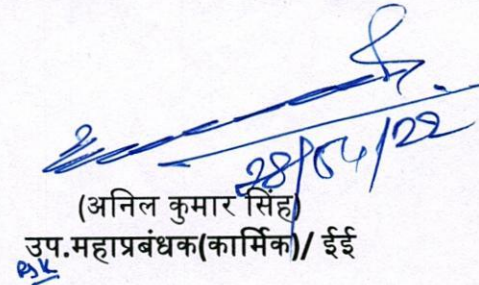 28/04/22
(अनिल कुमार सिंह)
उप.महाप्रबंधक(कार्मिक)/ ईई